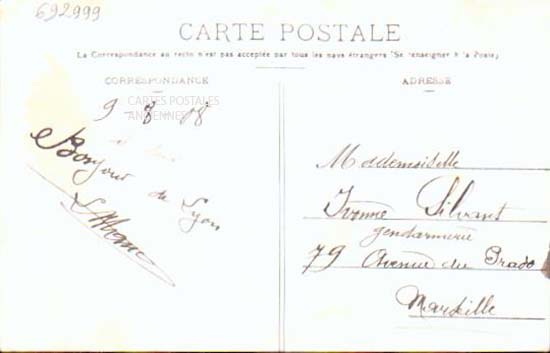 692999
CARTE POSTALE
La Correspondance au recto n'est pas acceptée par tous les pays étrangers (Se renseigner à la Poste)
CORRESPONDANCE
ADRESSE
CARTES POSTALES
ANCIENNES
9-8-08
Bonjour de Lyon
Mademoiselle
Yvonne Silvant
gendarmerie
79 Avenue du Prado
Marseille